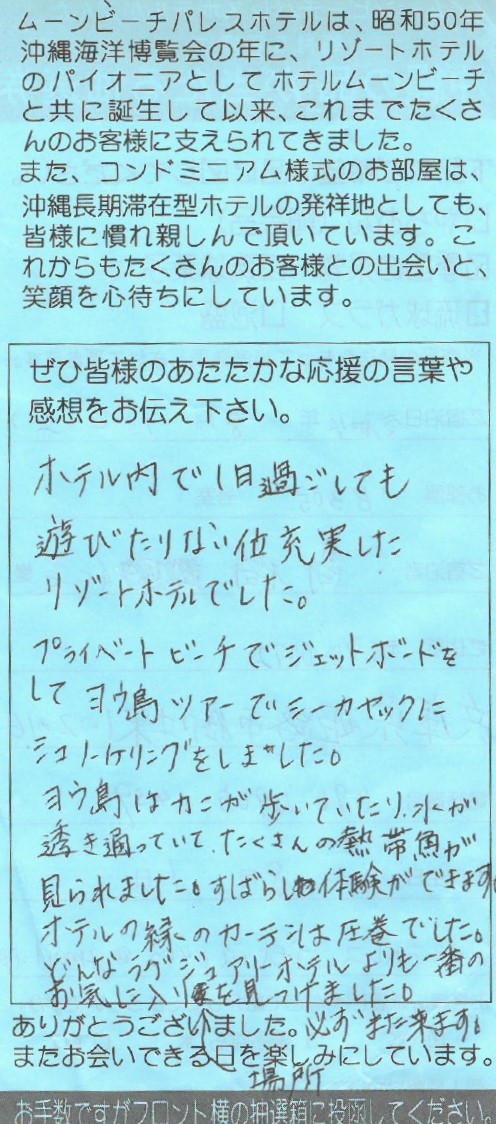 ムーンビーチパレスホテルは、昭和50年
沖縄海洋博覧会の年に、リゾートホテル
のパイオニアとしてホテルムーンビーチ
と共に誕生して以来、これまでたくさ
んのお客様に支えられてきました。
また、コンドミニアム様式のお部屋は、
沖縄長期滞在型ホテルの発祥地としても、
皆様に慣れ親しんで頂いています。こ
れからもたくさんのお客様との出会いと、
笑顔を心待ちにしています。
ぜひ皆様のあたたかな応援の言葉や
感想をお伝え下さい。
ホテル内で1日過ごしても
遊びたりない位充実した
リゾートホテルでした。
プライベートビーチでジェットボードを
して ヨウ島ツアーでシーカヤックに
シュノーケリングをしました。
ヨウ島はカニが歩いていたり、水が
透き通っていて、たくさんの熱帯魚が
見られました。すばらしい体験ができます。
ホテルの緑のカーテンは圧巻でした。
どんなラグジュアリーホテルよりも一番の
お気に入り場所を見つけました。
ありがとうございました。必ずまた来ます。
またお会いできる日を楽しみにしています。
お手数ですがフロント横の抽選箱に投函してください。